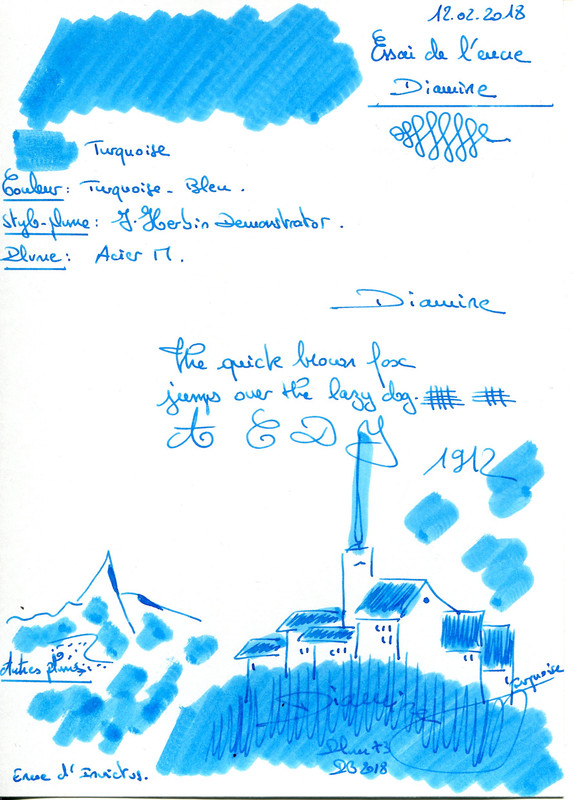 12.02.2018
Essai de l'encre
Diamine
Turquoise
Couleur: Turquoise - Bleu.
Stylo-plume: J. Herbin Demonstrator.
Plume: Acier M.
Diamine
The quick brown fox
jumps over the lazy dog.
A E D J
1912
Autres plumes
Turquoise
Diamine
DB 2018
Encre d'Invictus.